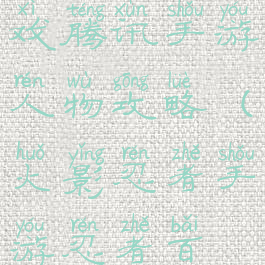 xì téng xùn shǒu yóu
戏腾讯手游
rén wù gōng lüè
人物攻略（
huǒ yǐng rěn zhě shǒu
火影忍者手
yóu rěn zhě bǎi
游忍者百